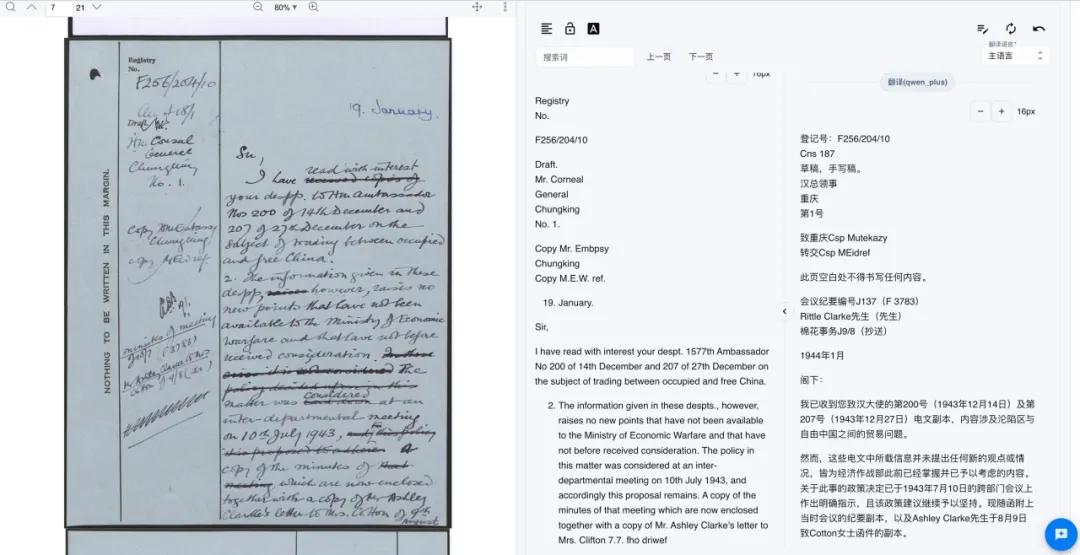 7
21
80%
Registry
No.
F256/204/10
Draft.
H.M. Consul
General
Chungking
No. 1.
Copy HM Embassy
Chungking
copy MEW ref
minutes of meeting
(F 3783)
NOTHING TO BE WRITTEN IN THIS MARGIN.
19. January.
Sir,
read with interest
I have received copies of
your despp. to HM Ambassador
Nos 200 of 14th December and
207 of 27th December on the
subject of trading between occupied
and free China.
2. The information given in these
despp, raises however, raises no
new points that have not been
available to the Ministry of Economic
Warfare and that have not before
received consideration. The
policy decided upon in this
considered
matter was at an
inter-departmental meeting
on 10th July 1943, and this policy
A
copy of the minutes of that
meeting, which are now enclosed
together with a copy of Mr Ashley
Clarke's letter to Mrs. Cotton of 9th
August
搜索词
上一页
下一页
翻译语言*
主语言
翻译(qwen_plus)
16px
16px
Registry
No.
F256/204/10
Draft.
Mr. Corneal
General
Chungking
No. 1.
Copy Mr. Embpsy
Chungking
Copy M.E.W. ref.
19. January.
Sir,
I have read with interest your despt. 1577th Ambassador
No 200 of 14th December and 207 of 27th December on
the subject of trading between occupied and free China.
2. The information given in these despts., however,
raises no new points that have not been available
to the Ministry of Economic Warfare and that have
not before received consideration. The policy in
this matter was considered at an inter-
departmental meeting on 10th July 1943, and
accordingly this proposal remains. A copy of the
minutes of that meeting which are now enclosed
together with a copy of Mr. Ashley Clarke's letter to
Mrs. Clifton 7.7. fho driwef
登记号：F256/204/10
Cns 187
草稿，手写稿。
汉总领事
重庆
第1号
致重庆Csp Mutekazy
转交Csp MEidref
此页空白处不得书写任何内容。
会议纪要编号J137（F 3783）
Rittle Clarke先生（先生）
棉花事务J9/8（抄送）
1944年1月
阁下：
我已收到您致汉大使的第200号（1943年12月14日）及第
207号（1943年12月27日）电文副本，内容涉及沦陷区与
自由中国之间的贸易问题。
然而，这些电文中所载信息并未提出任何新的观点或情
况，皆为经济作战部此前已经掌握并已予以考虑的内容。
关于此事的政策决定已于1943年7月10日的跨部门会议上
作出明确指示，且该政策建议继续予以坚持。现随函附上
当时会议的纪要副本，以及Ashley Clarke先生于8月9日
致Cotton女士函件的副本。